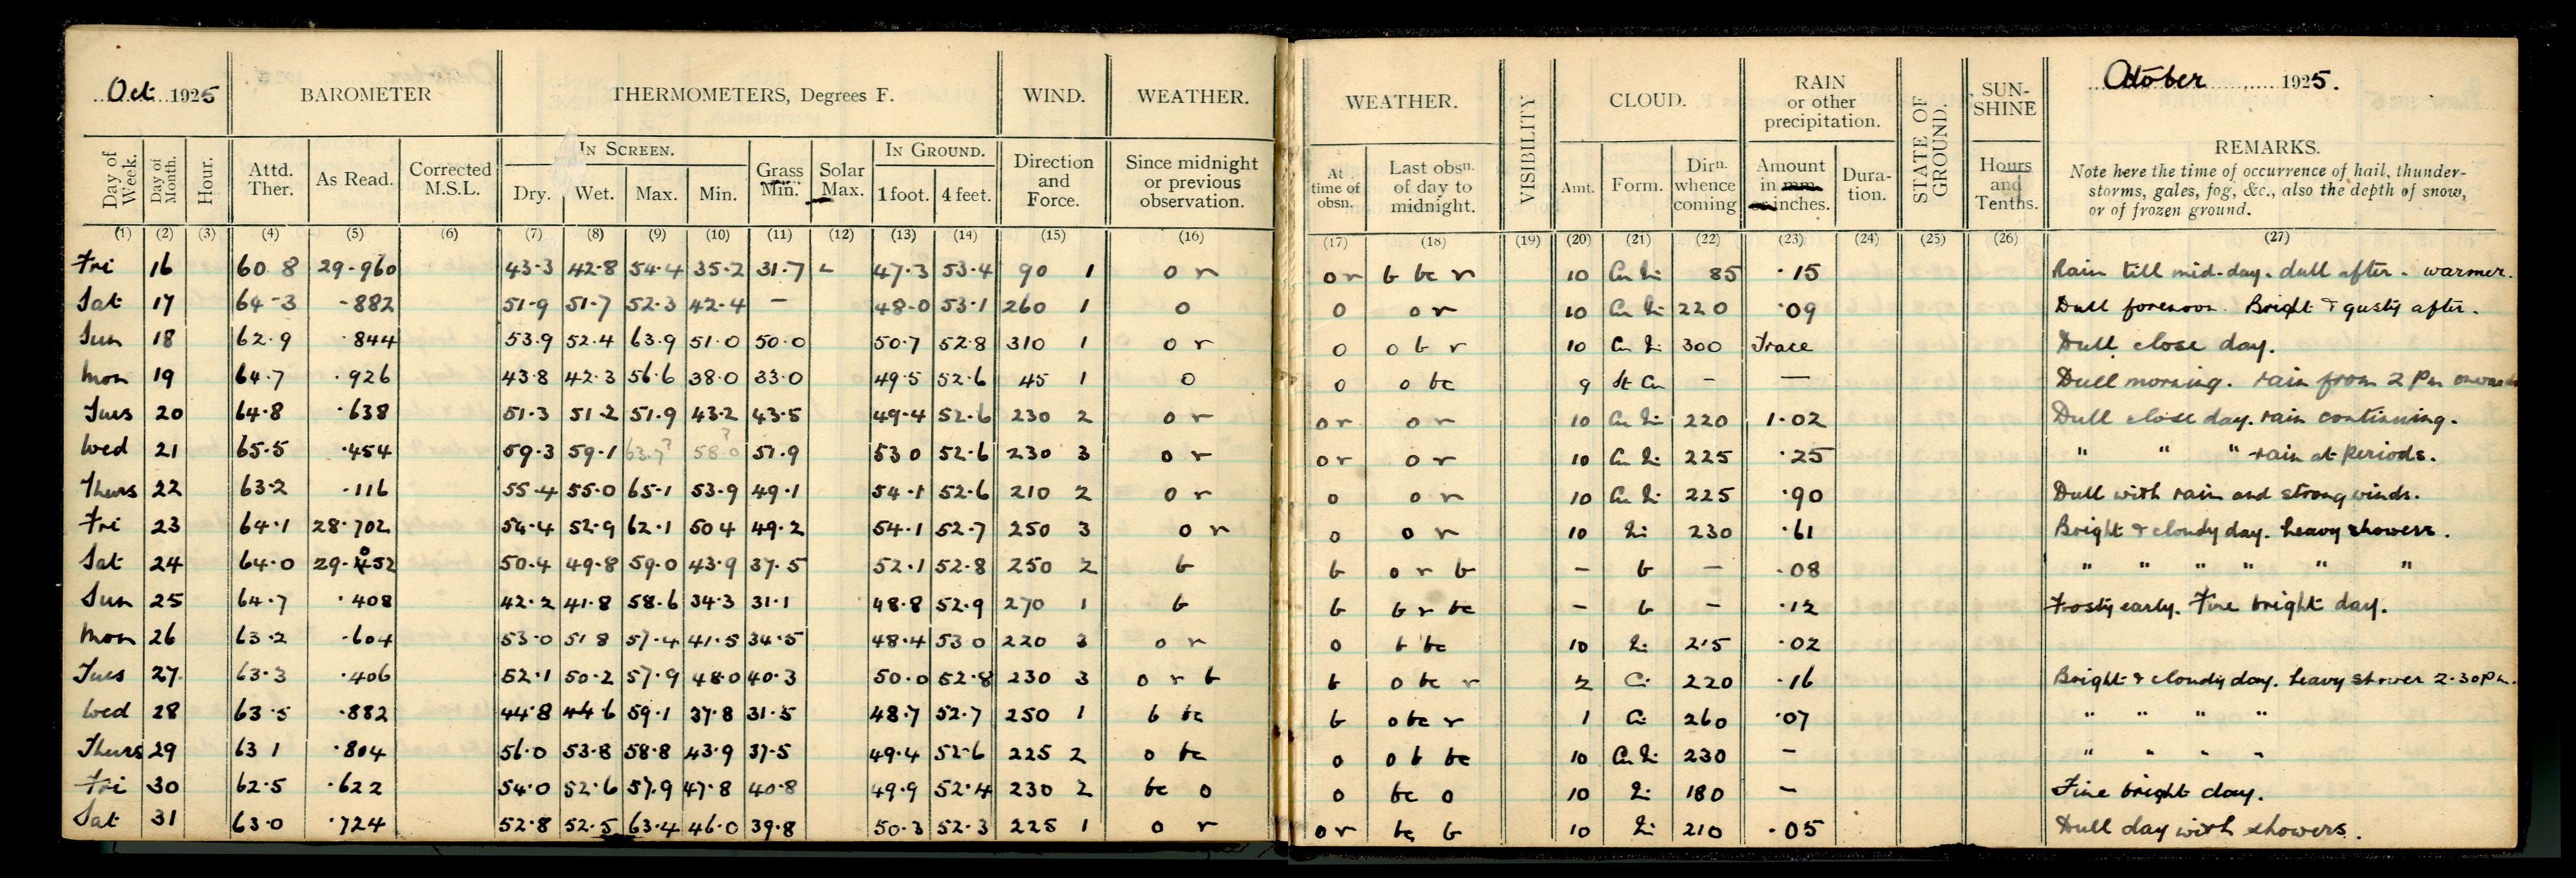 Oct 1925 BAROMETER THERMOMETERS, Degrees F. WIND. WEATHER. WEATHER. VISIBILITY CLOUD. RAIN or other precipitation. STATE OF GROUND. SUN-SHINE October 1925.
Day of Week. Day of Month. Hour. Attd. Ther. As Read. Corrected M.S.L. IN SCREEN. Dry. Wet. Max. Min. Grass Min. Solar Max. IN GROUND. 1 foot. 4 feet. Direction and Force. Since midnight or previous observation. At time of obsn. Last obsn. of day to midnight. Amt. Form. Dirn. whence coming Amount in mm. or inches. Dura-tion. Hours and Tenths. REMARKS.
Note here the time of occurrence of hail, thunder-
storms, gales, fog, &c., also the depth of snow,
or of frozen ground.
(1) (2) (3) (4) (5) (6) (7) (8) (9) (10) (11) (12) (13) (14) (15) (16) (17) (18) (19) (20) (21) (22) (23) (24) (25) (26) (27)
Fri 16 60.8 29.960 43.3 42.8 54.4 35.2 31.7 47.3 53.4 90 1 o r o r b bc r 10 Cu Ni 85 .15 Rain till mid-day. dull after. warmer.
Sat 17 64.3 .882 51.9 51.7 52.3 42.4 — 48.0 53.1 260 1 o o o r 10 Cu Ni 220 .09 Dull forenoon. Bright & gusty after.
Sun 18 62.9 .844 53.9 52.4 63.9 51.0 50.0 50.7 52.8 310 1 o r o o b r 10 Cu Ni 300 Trace Dull close day.
Mon 19 64.7 .926 43.8 42.3 56.6 38.0 33.0 49.5 52.6 45 1 o o o bc 9 St Cu — — Dull morning. rain from 2 Pm onwards
Tues 20 64.8 .638 51.3 51.2 51.9 43.2 43.5 49.4 52.6 230 2 o r o r o r 10 Cu Ni 220 1.02 Dull close day. rain continuing.
Wed 21 65.5 .454 59.3 59.1 63.7? 58.0? 57.9 53.0 52.6 230 3 o r o r o r 10 Cu Ni 225 .25 " " " rain at Periods.
Thurs 22 63.2 .116 55.4 55.0 65.1 53.9 49.1 54.1 52.6 210 2 o r o o r 10 Cu Ni 225 .90 Dull with rain and strong winds.
Fri 23 64.1 28.702 54.4 52.9 62.1 50.4 49.2 54.1 52.7 250 3 o r o o r 10 Ni 230 .61 Bright & cloudy day. heavy showers.
Sat 24 64.0 29.052 50.4 49.8 59.0 43.9 37.5 52.1 52.8 250 2 b b o r b — b — .08 " " " " " "
Sun 25 64.7 .408 42.2 41.8 58.6 34.3 31.1 48.8 52.9 270 1 b b b r bc — b — .12 Frosty early. Fine bright day.
Mon 26 63.2 .604 53.0 51.8 57.4 41.5 34.5 48.4 53.0 220 3 o r o b bc 10 Ni 215 .02
Tues 27 63.3 .406 52.1 50.2 57.9 48.0 40.3 50.0 52.8 230 3 o r b b o bc r 2 Ci 220 .16 Bright & cloudy day. heavy shower 2.30 Pm.
Wed 28 63.5 .882 44.8 44.6 59.1 37.8 31.5 48.7 52.7 250 1 b bc b o bc r 1 Ci 260 .07 " " " "
Thurs 29 63.1 .804 56.0 53.8 58.8 43.9 37.5 49.4 52.6 225 2 o bc o o b bc 10 Cu Ni 230 — " " " "
Fri 30 62.5 .622 54.0 52.6 57.9 47.8 40.8 49.9 52.4 230 2 bc o o bc o 10 Ni 180 — Fine bright day.
Sat 31 63.0 .724 52.8 52.5 63.4 46.0 39.8 50.3 52.3 225 1 o r o r bc b 10 Ni 210 .05 Dull day with showers.